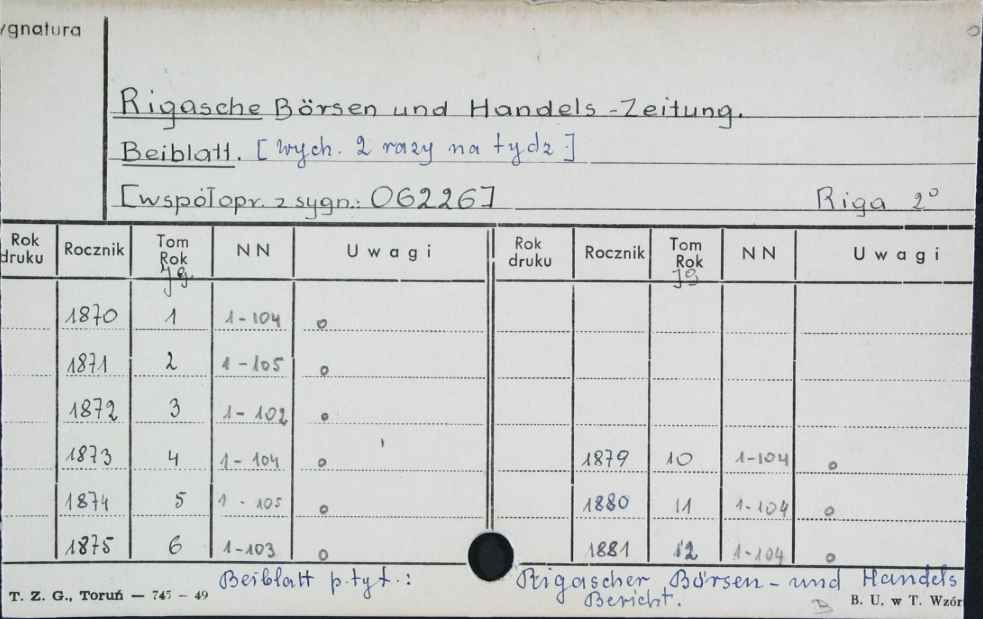 ygnatura
Rigasche Börsen und Handels-Zeitung.
Beiblatt. [Wych. 2 razy na tydz.]
[współopr. z sygn.: 06226] Riga 2°
Rok druku Rocznik Tom Rok Jg. NN Uwagi Rok druku Rocznik Tom Rok Jg NN Uwagi
1870 1 1-104 o
1871 2 1-105 o
1872 3 1-102 o
1873 4 1-104 o 1879 10 1-104 o
1874 5 1-105 o 1880 11 1-104 o
1875 6 1-103 o 1881 12 1-104 o
Beiblatt p. tyt.: Rigascher Börsen- und Handels
Bericht.
T. Z. G., Toruń — 745 - 49 B. U. w T. Wzór